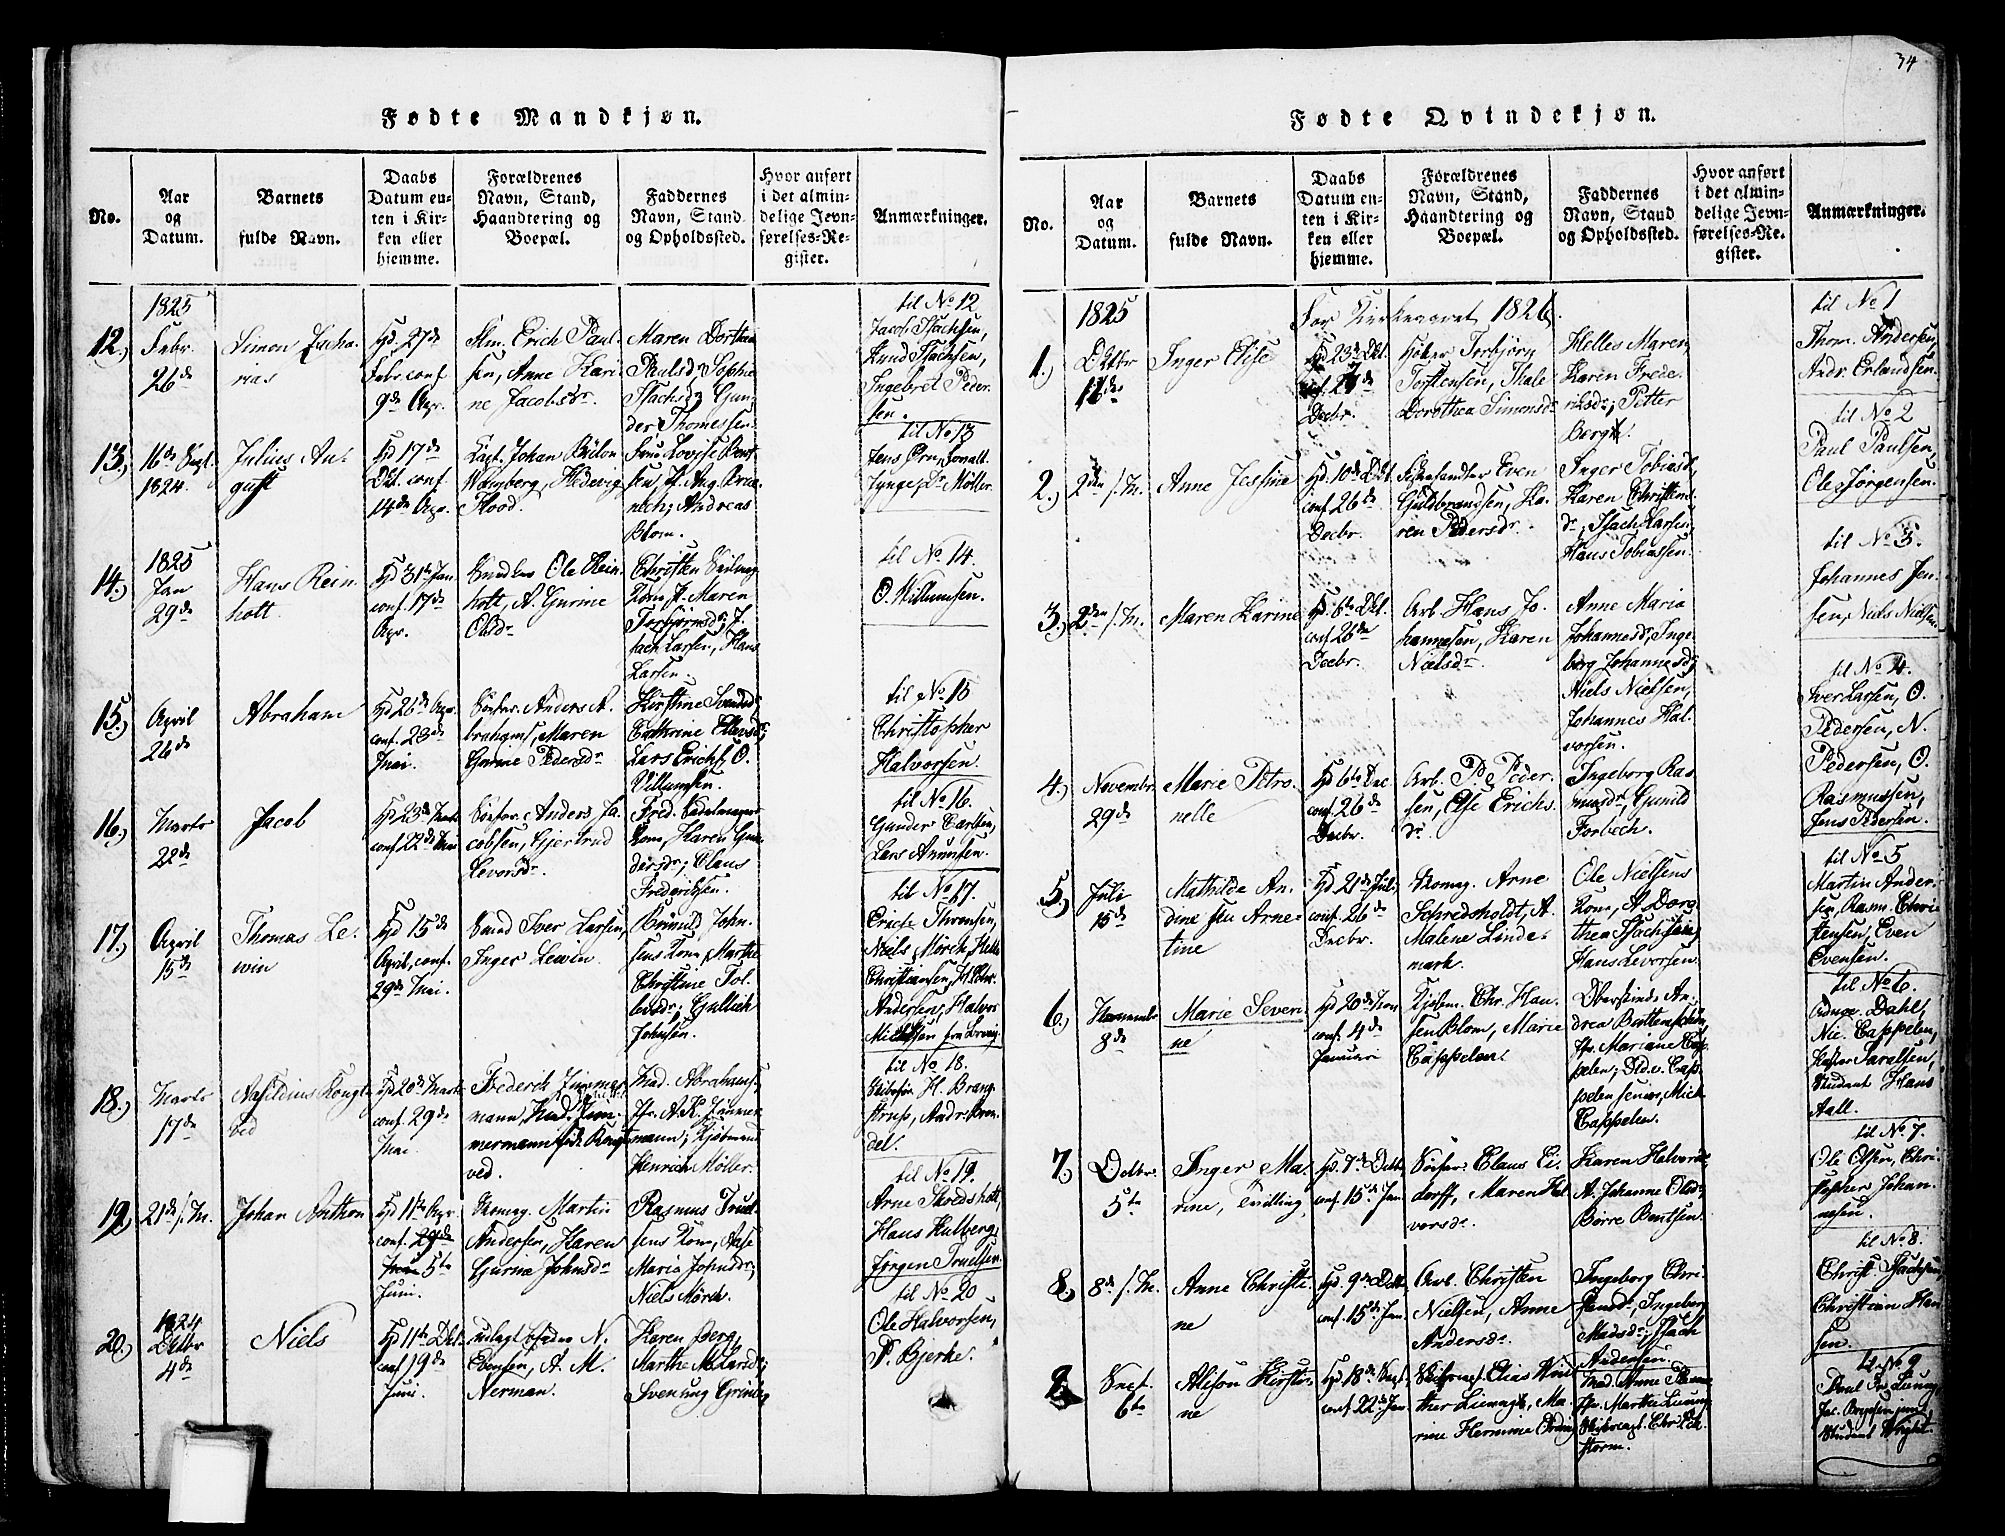 34
Fødte Mandkjøn.
No.
Aar
og
Datum.
Barnets
fulde Navn.
Daabs
Datum en-
ten i Kir-
ken eller
hjemme.
Forældrenes
Navn, Stand,
Haandtering og
Boepæl.
Faddernes
Navn, Stand
og Opholdssted.
Hvor anført
i det almin-
delige Jevn-
førelses-Re-
gister.
Anmærkninger.
12.)
1825
Febr.
26de
Simon Zacha-
rias
Hd. 27de
Febr. conf.
9de Apr.
Erich Paul-
sen, Anne Kari-
ne Jacobsdr.
Maren Dorthea
Paulsd; Sophie
Isachsd; Gun-
der Thomessen
til No 12
Jacob Isachsen,
Knud Isachsen,
Ingebret Peder-
sen.
13.)
16de Sept.
1824.
Julius Au-
gust
Hd 17de
Oct. conf.
14de Apr.
Capt. Johan Bülow
Hedevig
Flood.
Andreas
Blom.
til No 13
Møller.
14.)
1825
Jan
29de
Hans Rein-
hott
Hd 31te Jan
conf. 17de
Apr.
Ole Rein-
hott, A. Gurine
Olsdr
Christen
Kone, J. Maren
Torbjørnsdr; I-
sach Larsen, Hans
Larsen.
til No 14.
O. Willumsen.
15.)
April
26de
Abraham
Hd 26de Apr.
conf. 23de
Mai.
Anders A-
brahams, Maren
Gurine Pedersdr
Kirstine Svendsd,
Cathrine Ellevsd;
Lars Erichs, O.
Villumsen.
til No 15
Christopher
Halvorsen.
16.)
Marts
22de
Jacob
Hd 23de Marts
conf 22de Mai
Anders Ja-
cobsen, Gjertrud
Levorsdr.
Fred. Sadelmager
Kone, Karen Gun-
dersdr; Claus
Frederichsen.
til No 16.
Gunder Carlsen,
Lars Anunsen.
17.)
April
15de
Thomas Le-
win
Hd 15de
April, conf.
29de Mai.
Iver Larsen,
Inger Lewin.
Brünild John-
sens Kone, Marthe
Christine Tol-
levsdr; Gullich
Johnsen.
til No 17.
Erich Thronsen,
Niels Mörch,
Christiansen, H. Chr.
Andersen, Halvor
18.)
Marts
17de
Hd 20de Marts
conf. 29de
Mai
Frederik Zimmer-
mann,
mermann
ved.
Mad. Abrahamsen
Fr. A. K. Zimmer-
mann; Kjøbmand
Henrich Møller.
til No 18.
H. Brang-
strup, Andr. Bren-
del.
19.)
21de s. M.
Johan Anthon
Hd 11te Apr.
conf. 29de
Mai 5te
Juni.
Martin
Andersen, Karen
Gurine Johnsdr
Rasmus Truel-
sens Kone, Aase
Maria Johnsdr;
Niels Mörch.
til No 19.
Arne Skredsholt,
Hans Hulberg,
Jørgen Truelsen.
20.)
1824
Octbr
4de
Niels
Hd 11te Oct.
conf 19de
Juni.
N.
Ebensen, A. M.
Nerman.
Karen Berg,
Marthe M. Larsdr;
Svenung Grinie
til No 20
Ole Halvorsen,
P. Bjerke.
Fødte Qvindekjøn.
No.
Aar
og
Datum.
Barnets
fulde Navn.
Daabs
Datum en-
ten i Kir-
ken eller
hjemme.
Forældrenes
Navn, Stand,
Haandtering og
Boepæl.
Faddernes
Navn, Stand
og Opholdssted.
Hvor anført
i det almin-
delige Jevn-
førelses-Re-
gister.
Anmærkninger.
For Kirkeaaret 1826.
1.)
1825
Octbr
11te
Inger Elise
Hd 23de Oct.
conf. 27de
Decbr.
Torbjörn
Torstensen, Thale
Dorothea Simonsdr
Helles Maren,
Karen Frede-
riksdr; Petter
Berg.
til No 1
Thom. Andersen,
Andr. Erlandsen.
2.)
2den s. M.
Anne Jessine
Hd. 10de Oct.
conf. 26de
Decbr.
Even
Guldbrandsen, Ka-
ren Pedersdr.
Inger Tobiasd,
Karen Christens-
dr; Isach Larsen,
Hans Tobiassen.
til No 2
Paul Paulsen,
Ole Jörgensen.
3.)
2den s. M.
Maren Karine
Hd. 6te Oct.
conf. 26de
Decbr.
Arb. Hans Jo-
hannesen, Karen
Nielsdr.
Anne Maria
Johannesd, Inge-
borg Johannesd;
Niels Nielsen,
Johannes Hal-
vorsen.
til No 3.
Johannes Jen-
sen, Niels Nielsen.
4.)
Novembr.
29de
Marie Petro-
nelle
Hd 6te Dec.
conf. 26de
Decbr.
Arb. P. Peder-
sen, Else Erichs-
dr.
Ingeborg Ras-
musdr; Gunild
Forbech.
til No 4.
Iver Larsen, O.
Pedersen, N.
Pedersen, O.
Rasmussen,
Jens Pedersen.
5.)
Juli
15de
Mathilde An-
dine Arne-
tine
Hd. 21de Jul.
conf. 26de
Decbr.
Skomag. Arne
Schredsholdt, A.
Malene Linde-
mark.
Ole Nielsens
Kone, A. Doro-
thea Isachsen,
Hans Levorsen.
til No 5
Martin Ander-
sen, Rasm. Chri-
stensen, Even
Evensen.
6.)
Novembr
8de
Marie Severi-
ne
Hd 20de Nov
conf. 4de
Januari
Chr. Han-
sen Blom, Marie
Cappelen.
An-
drea
Fr. Mariane Cap-
pelen; Did. v. Cap-
pelen senior, Mich.
Cappelen.
til No 6.
Dahl,
Nic. Cappelen,
Student Hans
Aall.
7.)
Octbr.
5te
Inger Ma-
rine, Tvilling,
Hd. 7de Octb.
conf. 15de Jan.
Claus Ei-
dorff, Maren Hal-
vorsdr.
Karen Halvorsd,
A. Johanne Olsdr;
Börre Bentsen.
til No 7.
Ole Olsen, Chri-
stopher Johan-
nesen.
8.)
8de s. M.
Anne Christi-
ne
Hd. 9de Octb.
conf. 15de Jan.
Arb. Christen
Nielsen, Anne
Andersdr.
Ingeborg Chri-
stensdr, Ingeborg
Madsdr; Isach
Andersen.
til No 8.
Christ. Isachsen,
Christian Han-
sen.
9.)
Sept.
6te
Alison Kirsti-
ne
Hd. 18de Sept,
conf. 22de Jan
Elias
ther Ma-
rine Hermine
Mad. Anne
Fr. Marthe
Chr. Eck-
storm.
til No 9
Student Wright.